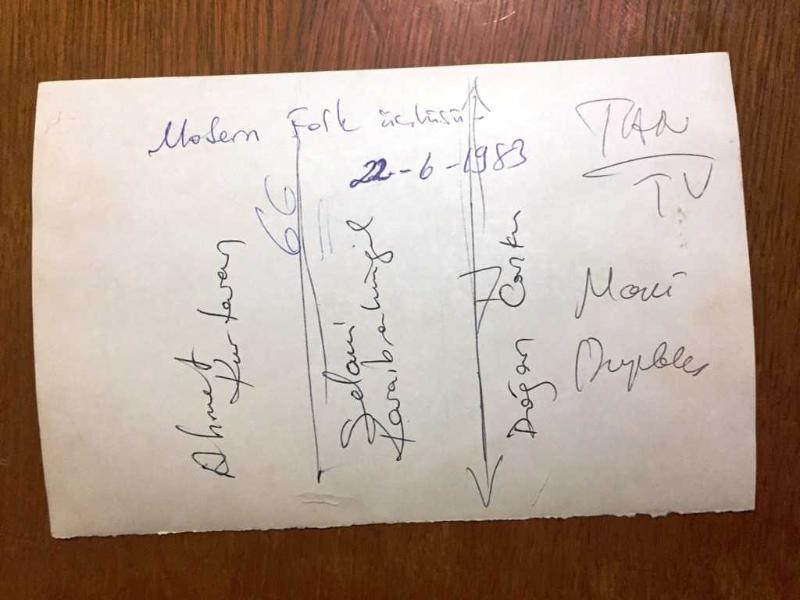 Modern Folk üçlüsü
22-6-1983
66
Ahmet
Kurtaran
Selami
Karaibrahimgil
Doğan Canku
TAN
TV
Mavi